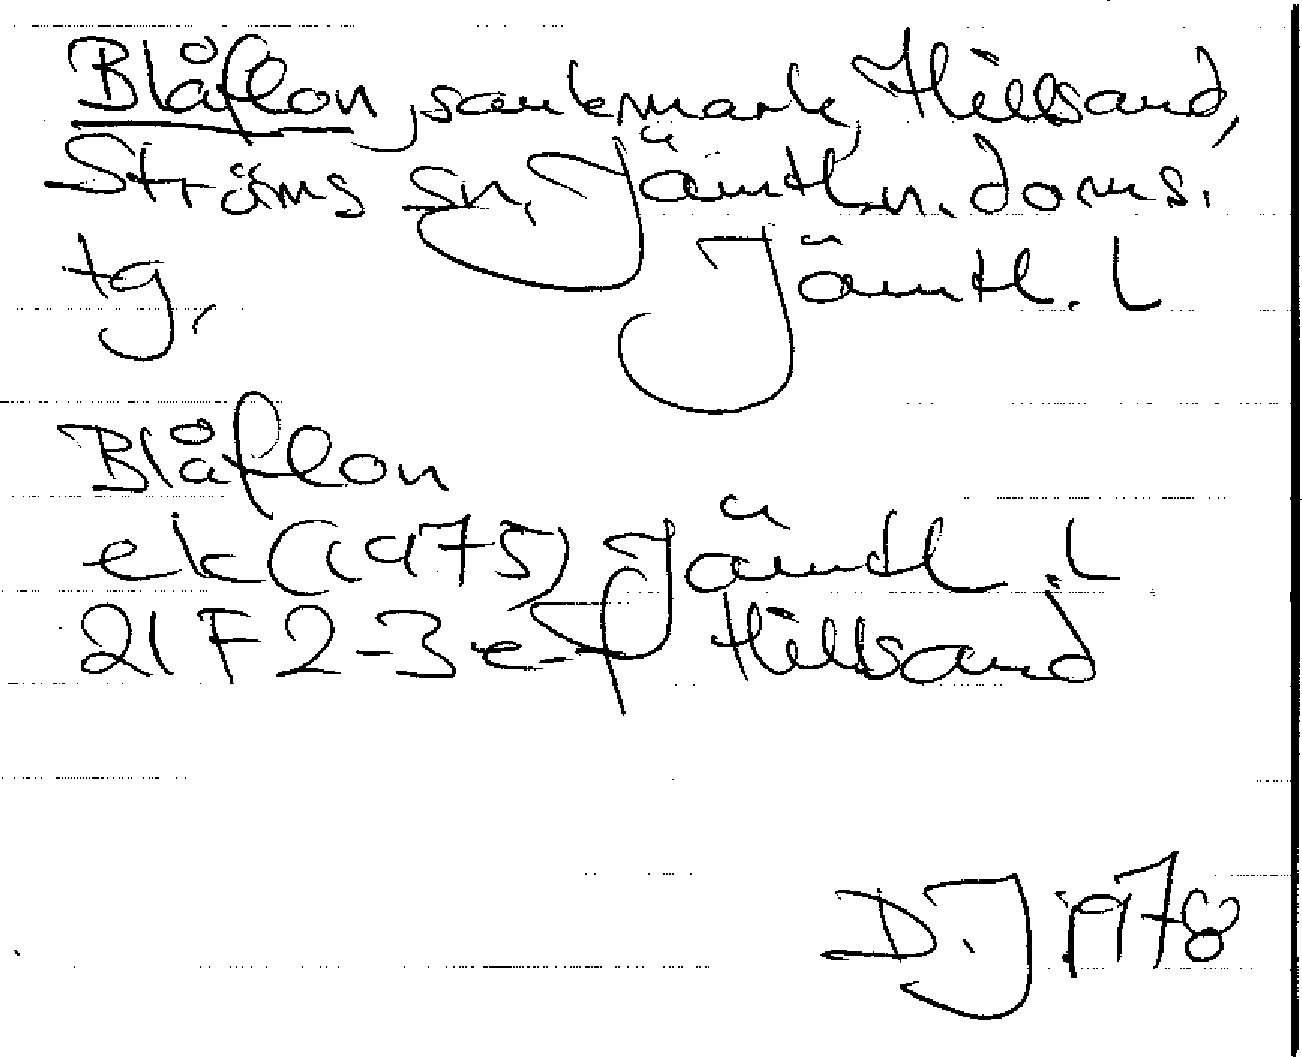 Blåflon, sankmark, Hillsand,
Ströms sn, Jämtl. n. doms.
tg,
Jämtl. L
Blåflon
ek (1975) Jämtl. L
21 F 2-3 e-f Hillsand
D.J 1978